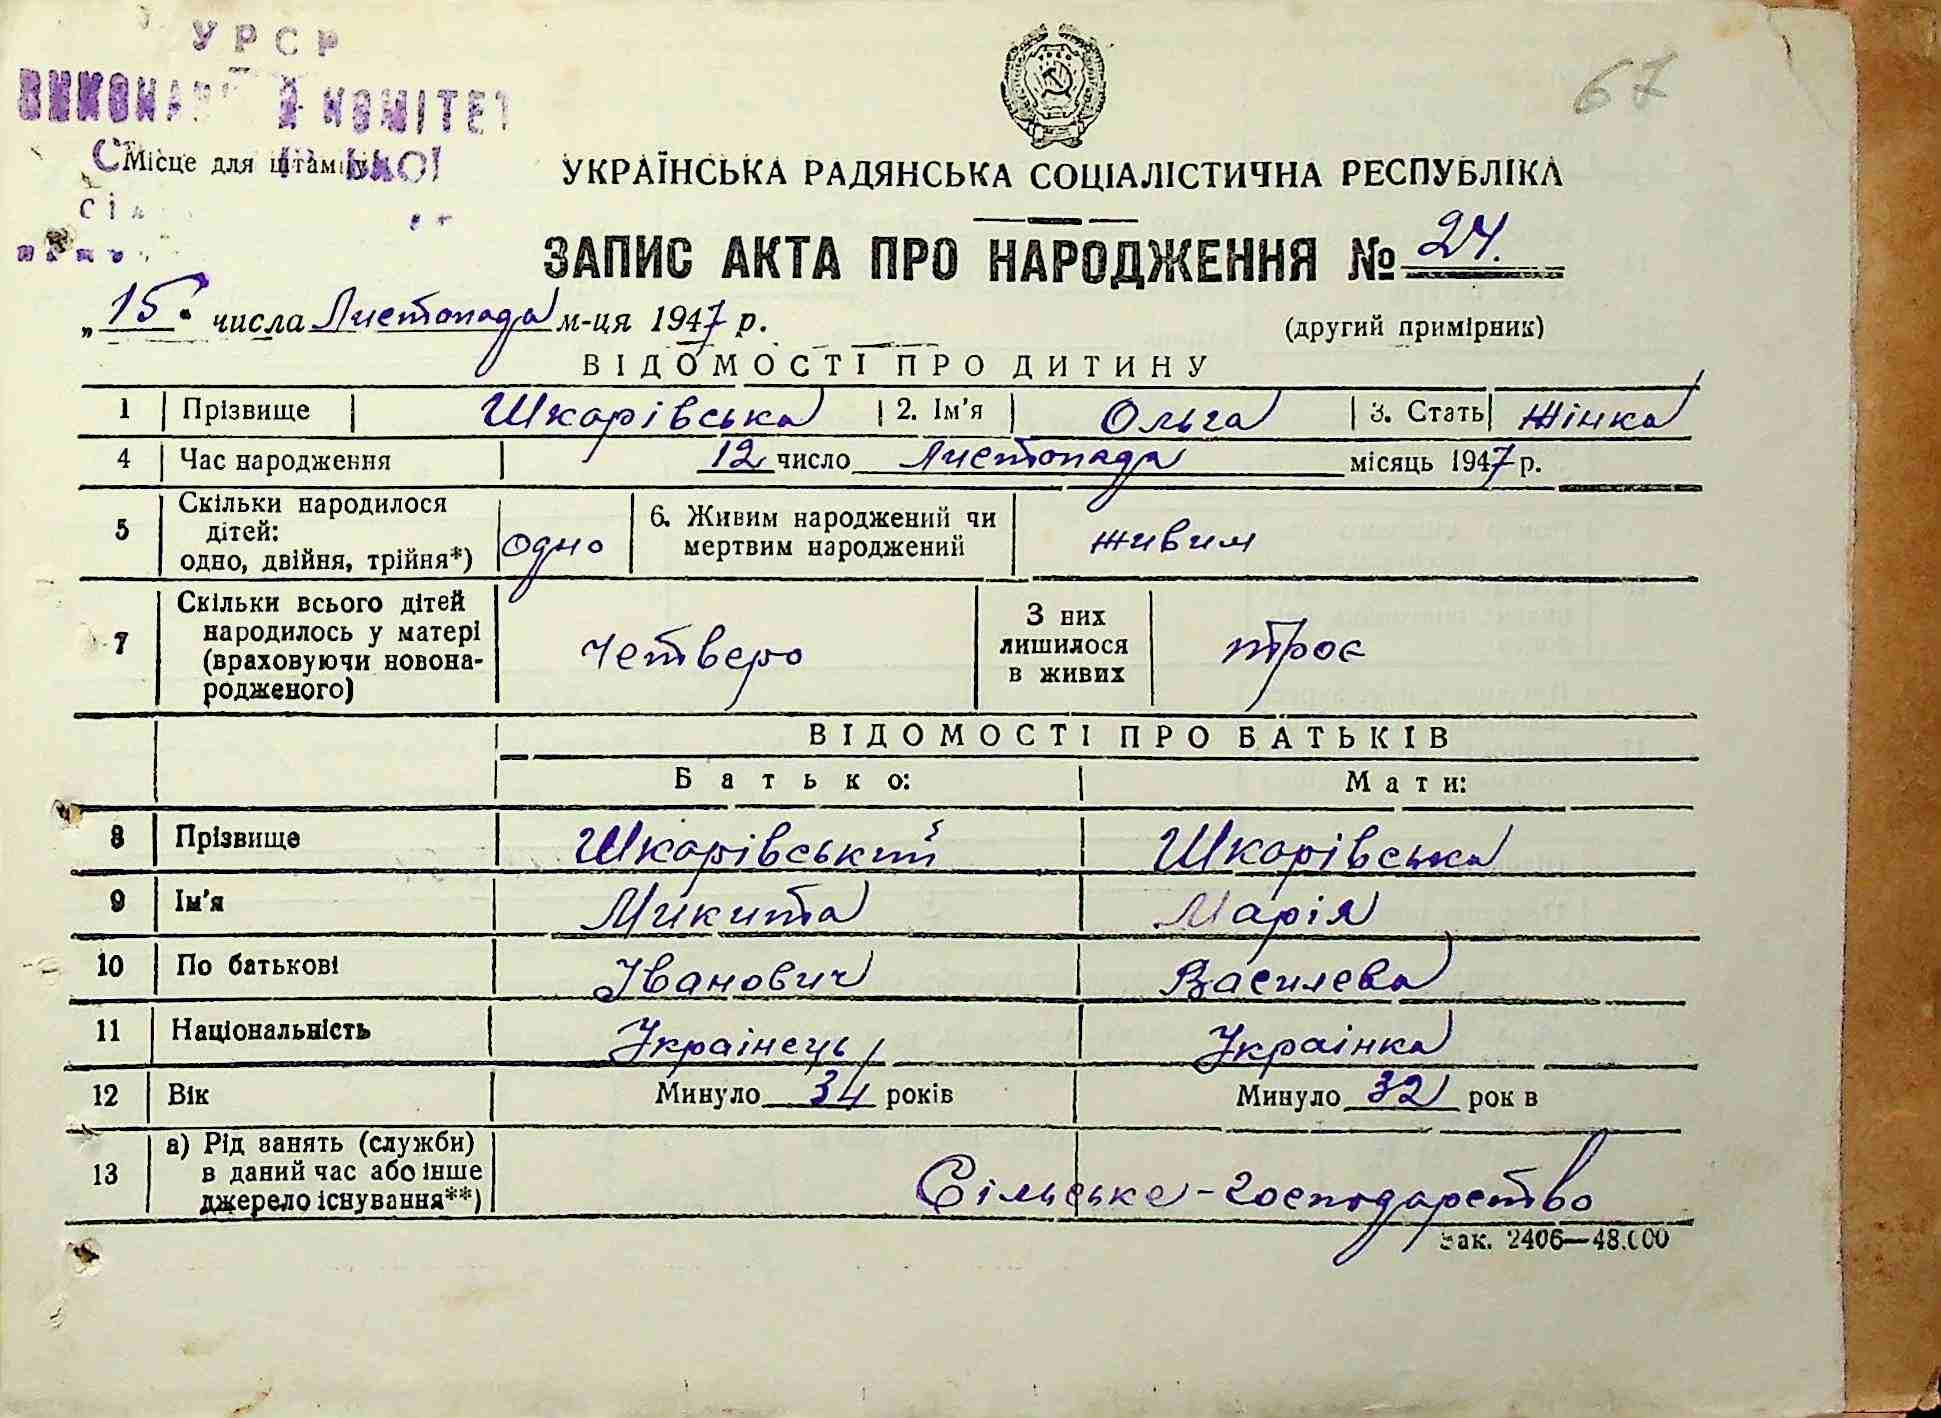 УРСР
67
КОМІТЕТ
Місце для штампу
УКРАЇНСЬКА РАДЯНСЬКА СОЦІАЛІСТИЧНА РЕСПУБЛІКА
ЗАПИС АКТА ПРО НАРОДЖЕННЯ № 24.
„15“ числа Листопада м-ця 1947 р.
(другий примірник)
ВІДОМОСТІ ПРО ДИТИНУ
1 Прізвище Шкарівська 2. Ім'я Ольга 3. Стать Жінка
4 Час народження 12 число Листопада місяць 1947 р.
5 Скільки народилося дітей: одно, двійня, трійня*) одно 6. Живим народжений чи мертвим народжений живим
7 Скільки всього дітей народилось у матері (враховуючи новонародженого) четверо З них лишилося в живих троє
ВІДОМОСТІ ПРО БАТЬКІВ
Батько: Мати:
8 Прізвище Шкарівський Шкарівська
9 Ім'я Микита Марія
10 По батькові Іванович Василева
11 Національність Українець Українка
12 Вік Минуло 34 років Минуло 32 рок в
13 а) Рід занять (служби) в даний час або інше джерело існування**) Сільське-господарство
Зак. 2406—48.000